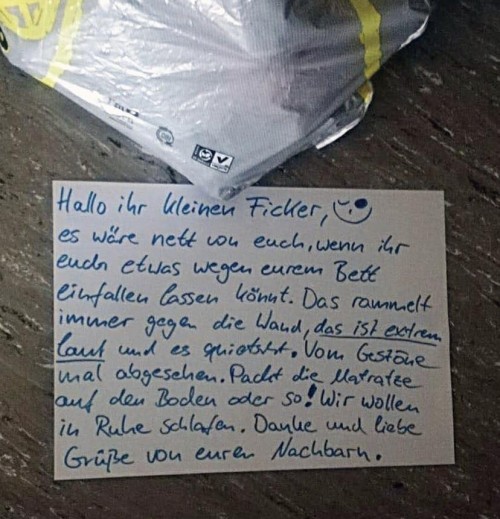 Hallo ihr kleinen Ficker,
es wäre nett von euch, wenn ihr
euch etwas wegen eurem Bett
einfallen lassen könnt. Das rammelt
immer gegen die Wand, das ist extrem
laut und es quietscht. Vom Gestöne
mal abgesehen. Packt die Matratze
auf den Boden oder so! Wir wollen
in Ruhe schlafen. Danke und liebe
Grüße von euren Nachbarn.